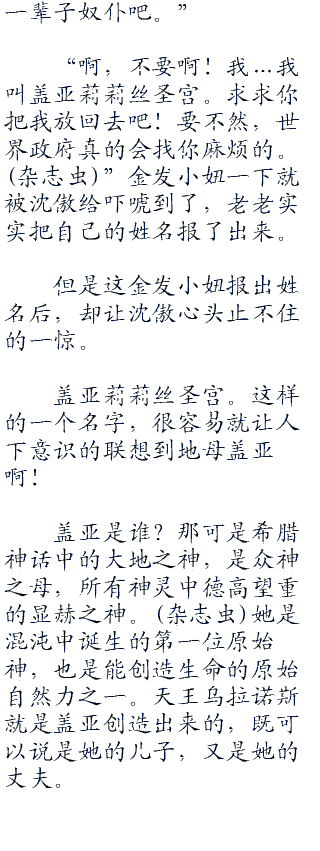 一辈子奴仆吧。”
“啊，不要啊！我…我
叫盖亚莉莉丝圣宫。求求你
把我放回去吧！要不然，世
界政府真的会找你麻烦的。
(杂志虫)”金发小妞一下就
被沈傲给吓唬到了，老老实
实把自己的姓名报了出来。
但是这金发小妞报出姓
名后，却让沈傲心头止不住
的一惊。
盖亚莉莉丝圣宫。这样
的一个名字，很容易就让人
下意识的联想到地母盖亚
啊！
盖亚是谁？那可是希腊
神话中的大地之神，是众神
之母，所有神灵中德高望重
的显赫之神。(杂志虫)她是
混沌中诞生的第一位原始
神，也是能创造生命的原始
自然力之一。天王乌拉诺斯
就是盖亚创造出来的，既可
以说是她的儿子，又是她的
丈夫。